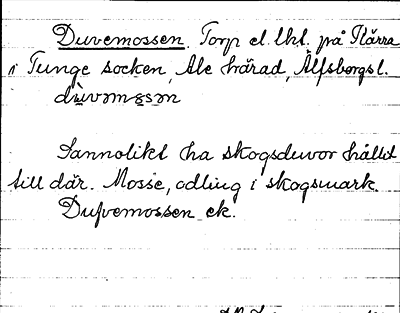 Duvemossen. Torp el. lht. på Kärra
i Tunge socken, Ale härad, Älfsborgs l.
Sannolikt ha skogsduvor hållit
till där. Mosse, odling i skogsmark.
Dufvemossen ek.